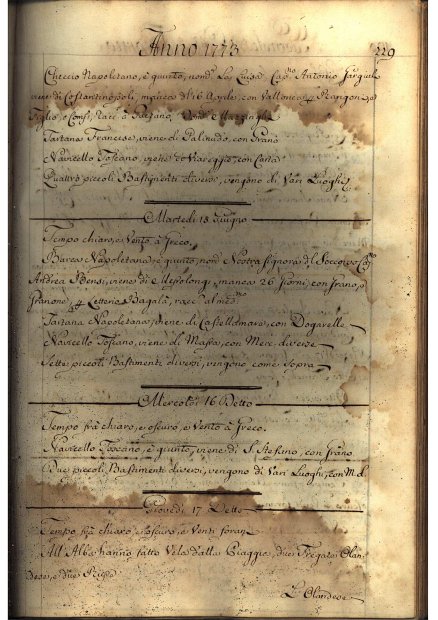 Anno 1773
229
Checcio Napoletano, è quinto, nom.º La Luisa Cap.no Antonio
viene di Costantinopoli, manca dl' 16 Aprile, con Vallonea, e
Figlio, e Comp., racc. à
Tartana Francese, viene di Palinudo, con Grano
Navicello Toscano, viene di Viareggio, con Carta
Quattro piccoli Bastimenti diversi, vengono di Vari Luoghi
Martedi 15 Giugno
Tempo chiaro, e Vento à Greco.
Barca Napoletana, è quinto, nom.º Nostra Signora dl Soccorso Cap.no
Andrea viene di Messolongi, manca 26 Giorni, con Grano, e
Granone, 4 Cettene Bagalà, racc. al med.mo
Tartana Napoletana, viene di Castellamare, con Dogarelle
Navicello Toscano, viene di Massa, con Merc. diverse
Sette piccoli Bastimenti diversi, vengono come Sopra
Mercoldi 16 Detto
Tempo frà chiaro, e oscuro, e Vento à Greco.
Navicello Toscano, è quinto, viene di S. Stefano, con Grano
Due piccoli Bastimenti diversi, vengono di Vari Luoghi, con M. d.
Giovedi 17 Detto
Tempo frà chiaro, e oscuro, e Venti forani
All' Alba hanno fatto Vela dalla Piaggia, due Fregate Olan-
desi, e due Russe
L' Olandese